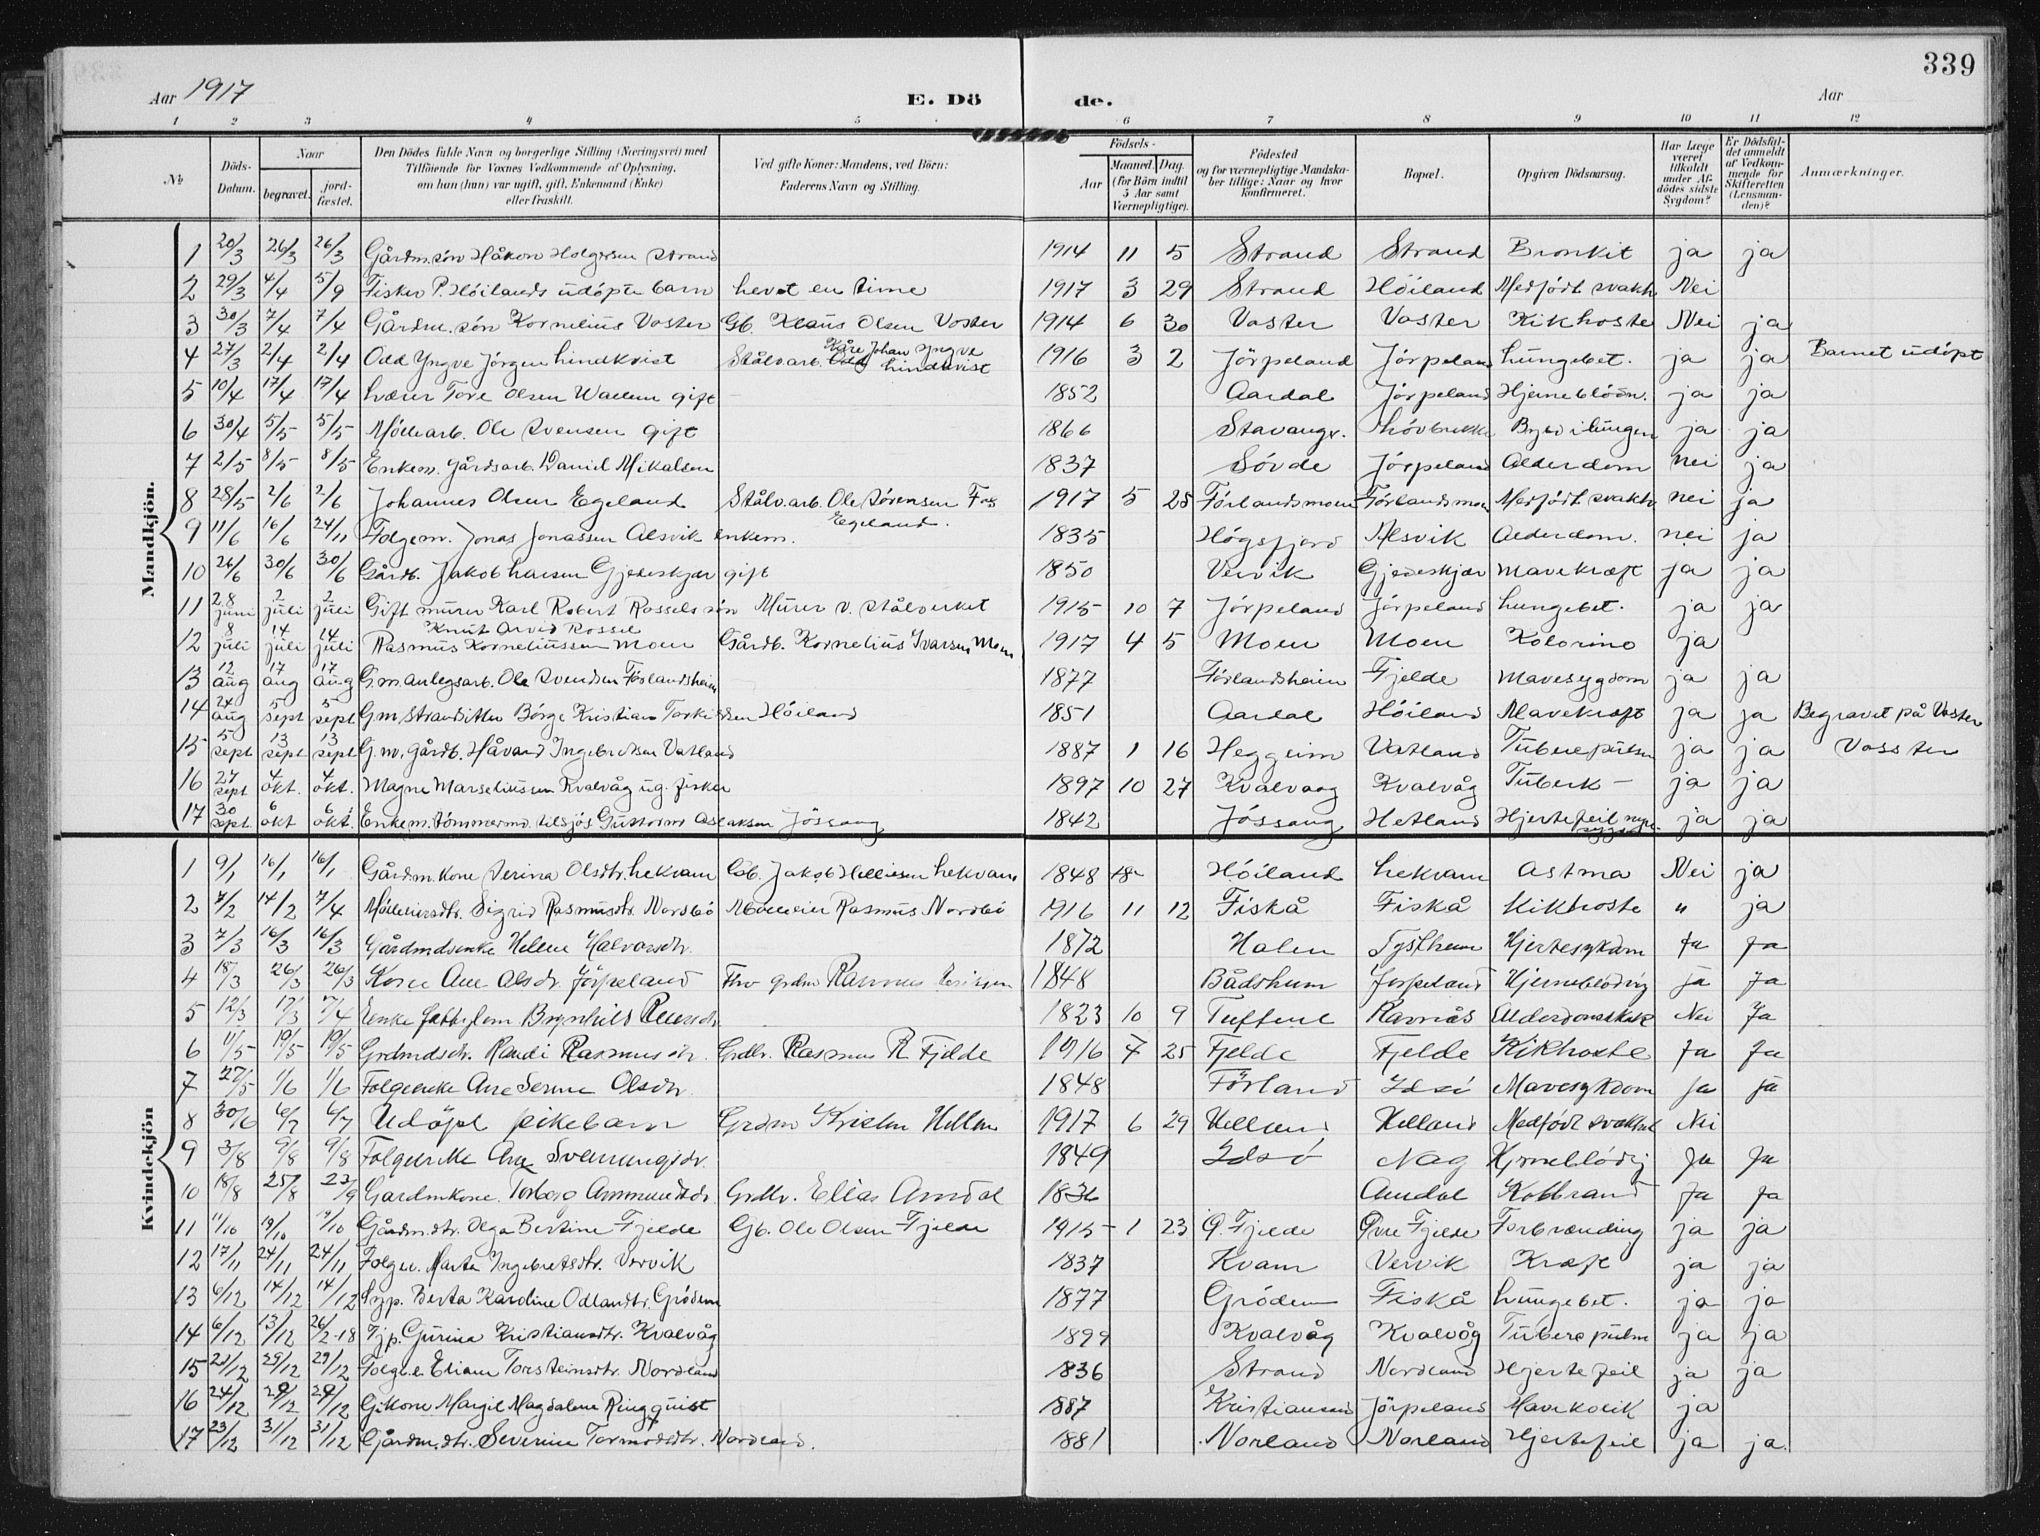 339
Aar 1917
E. Dö de.
Aar
1 2 3 4 5 6 7 8 9 10 11 12
No
Döds-Datum.
Naar begravet. jord-fæstet.
Den Dödes fulde Navn og borgerlige Stilling (Næringsvei) med Tilföiende for Voxnes Vedkommende af Oplysning, om han (hun) var ugift, gift, Enkemand (Enke) eller fraskilt.
Ved gifte Koner: Mandens, ved Börn: Faderens Navn og Stilling.
Födsels- Aar Maaned. Dag. (for Börn indtil 5 Aar samt Værnepligtige).
Födested og for værnepligtige Mandskaber tillige: Naar og hvor konfirmeret.
Bopæl.
Opgiven Dödsaarsag.
Har Læge været tilkaldt under Afdödes sidste Sygdom?
Er Dödsfaldet anmeldt af Vedkommende for Skifteretten (Lensmanden)?
Anmærkninger.
Mandkjön.
1 20/3 26/3 26/3 Gårdm. sön Håkon Holgersen Strand 1914 11 5 Strand Strand Bronkit ja ja
2 29/3 4/4 5/9 Fisker P. Höilands udöpte barn levet en time 1917 3 29 Strand Höiland Medfödt svakh Nei
3 30/3 7/4 7/4 Gårdm. sön Kornelius Voster Gb. Klaus Olsen Voster 1914 6 30 Voster Voster Kikhoste Nei ja
4 27/3 2/4 2/4 Odd Yngve Jörgen Lindkvist Stålvarb. Kåre Johan Yngve Lindkvist 1916 3 2 Jörpeland Jörpeland Lungebet. ja ja Barnet udöpt
5 10/4 17/4 17/4 Lærer Tore Olsen Wallem gift 1852 Aardal Jörpeland Hjerneblödn. ja ja
6 30/4 5/5 5/5 Möllearb. Ole Svensen gift 1866 Stavangr. Lövbrekke Byld i lungen ja ja
7 2/5 8/5 8/5 Enkem. gårdsarb. Daniel Mikalsen 1837 Sövde Jörpeland Alderdom nei ja
8 28/5 2/6 2/6 Johannes Olsen Egeland Stålv.arb. Ole Sörensen Egeland. 1917 5 25 Förlandsmoen Förlandsmoen Medfödt svakh nei ja
9 11/6 16/6 24/11 Folgem. Jonas Jonassen Alsvik enkem. 1835 Högsfjord Alsvik Alderdom. nei ja
10 26/6 30/6 30/6 Gårdb. Jakob Larsen Gjedeskjær gift 1850 Vervik Gjedeskjær Mavekræft ja ja
11 28 juni 2 juli 2 juli Gift murer Karl Robert Rossels sön Murer v. Stålverket 1915 10 7 Jörpeland Jörpeland Lungebet. ja ja
Knut Arvid Rossel
12 8 juli 14 juli 14 juli Rasmus Korneliussen Moen Gårdb. Kornelius Ivarsen Moen 1917 4 5 Moen Moen Kolorino ja
13 12 aug 17 aug 17 aug G.m. anlegsarb. Ole Svendsen Förlandsheim 1877 Förlandsheim Fjelde Mavesygdom ja ja
14 24 aug 5 sept 5 sept G.m. Strandsitter Börge Kristian Torkildsen Höiland 1851 Aardal Höiland Mavekræft ja ja Begravet på Voster
15 5 sept 13 sept 13 sept G.m. Gårdb. Håvard Ingebretsen Vatland 1887 1 16 Heggeim Vatland ja ja Voster
16 27 sept 4 okt. 4 okt. Magne Marseliussen Kvalvåg ug. fisker 1897 10 27 Kvalvaag Kvalvåg Tuberk – ja ja
17 30 sept 6 okt 6 okt. Enkem. Tömmerm. Guttorm Aslaksen Jössang 1842 Jössang Hetland Hjertefeil ja ja
Kvindekjön
1 9/1 16/1 16/1 Gårdm. kone Serina Olsdtr. Lekvam Gb. Jakob Helliesen Lekvam 1848 Höiland Lekvam Astma Nei ja
2 7/2 14/2 7/4 Sigrid Rasmusdtr. Nordbö Rasmus Nordbö 1916 11 12 Fiskå Fiskå Kikhoste " ja
3 7/3 16/3 16/3 Gårdmdsenke Helene Halvorsdtr. 1872 Halen Hjertesykdom Ja Ja
4 18/3 26/3 26/3 Kone Ane Olsdtr Jörpeland Rasmus 1848 Bådshum Jörpeland Hjerneblödng Ja Ja
5 12/3 17/3 7/4 Enke Brynhild 1823 10 9 Tuftene Ravnås Nei Ja
6 11/5 19/5 19/5 Grdmdsdtr. Randi Rasmusdtr. Grdbr. Rasmus R. Fjelde 1916 7 25 Fjelde Fjelde Kikhoste Ja Ja
7 27/5 1/6 1/6 Folgeenke Ane Serine Olsdtr. 1848 Förland Idsö Mavesykdom Ja Ja
8 30/6 6/7 6/7 Udöpt pikebarn Grdm Kristen Helland 1917 6 29 Helland Helland Medfödt svakhet Nei
9 3/8 9/8 9/8 Folgeenke Ane Sveinungsdtr. 1849 Idsö Nag Hjerneblödng Ja Ja
10 18/8 25/8 23/9 Gardmkone. Torborg Ammundsdtr. Grdbr. Elias Amdal 1836 Amdal Kolbrand Ja Ja
11 11/10 19/10 19/10 Gårdm.dtr. Olga Bertine Fjelde Gb. Ole Olsen Fjelde 1915 1 23 Ö. Fjelde Övre Fjelde Forbrænding ja ja
12 17/11 24/11 24/11 Folgee. Marta Ingebretsdtr. Vervik 1837 Kvam Vervik Kræft ja ja
13 6/12 14/12 14/12 Berta Karoline Odlandtr. Grödem 1877 Grödem Fiskå Lungebet. ja ja
14 6/12 13/12 26/2-18 Gurina Kristiansdtr. Kvalvåg 1899 Kvalvåg Kvalvåg ja ja
15 29/12 29/12 Eliam Torsteinsdtr. Nordland 1836 Strand Nordland Hjertefeil ja ja
16 24/12 29/12 29/12 Gikone Margit Magdalene Ringquist 1887 Kristiansand Jörpeland Mavekolik ja
17 23/12 31/12 31/12 Gårdm.dtr. Severine Tormodsdtr. Nordland. 1881 Norland Norland Hjertefeil ja ja.